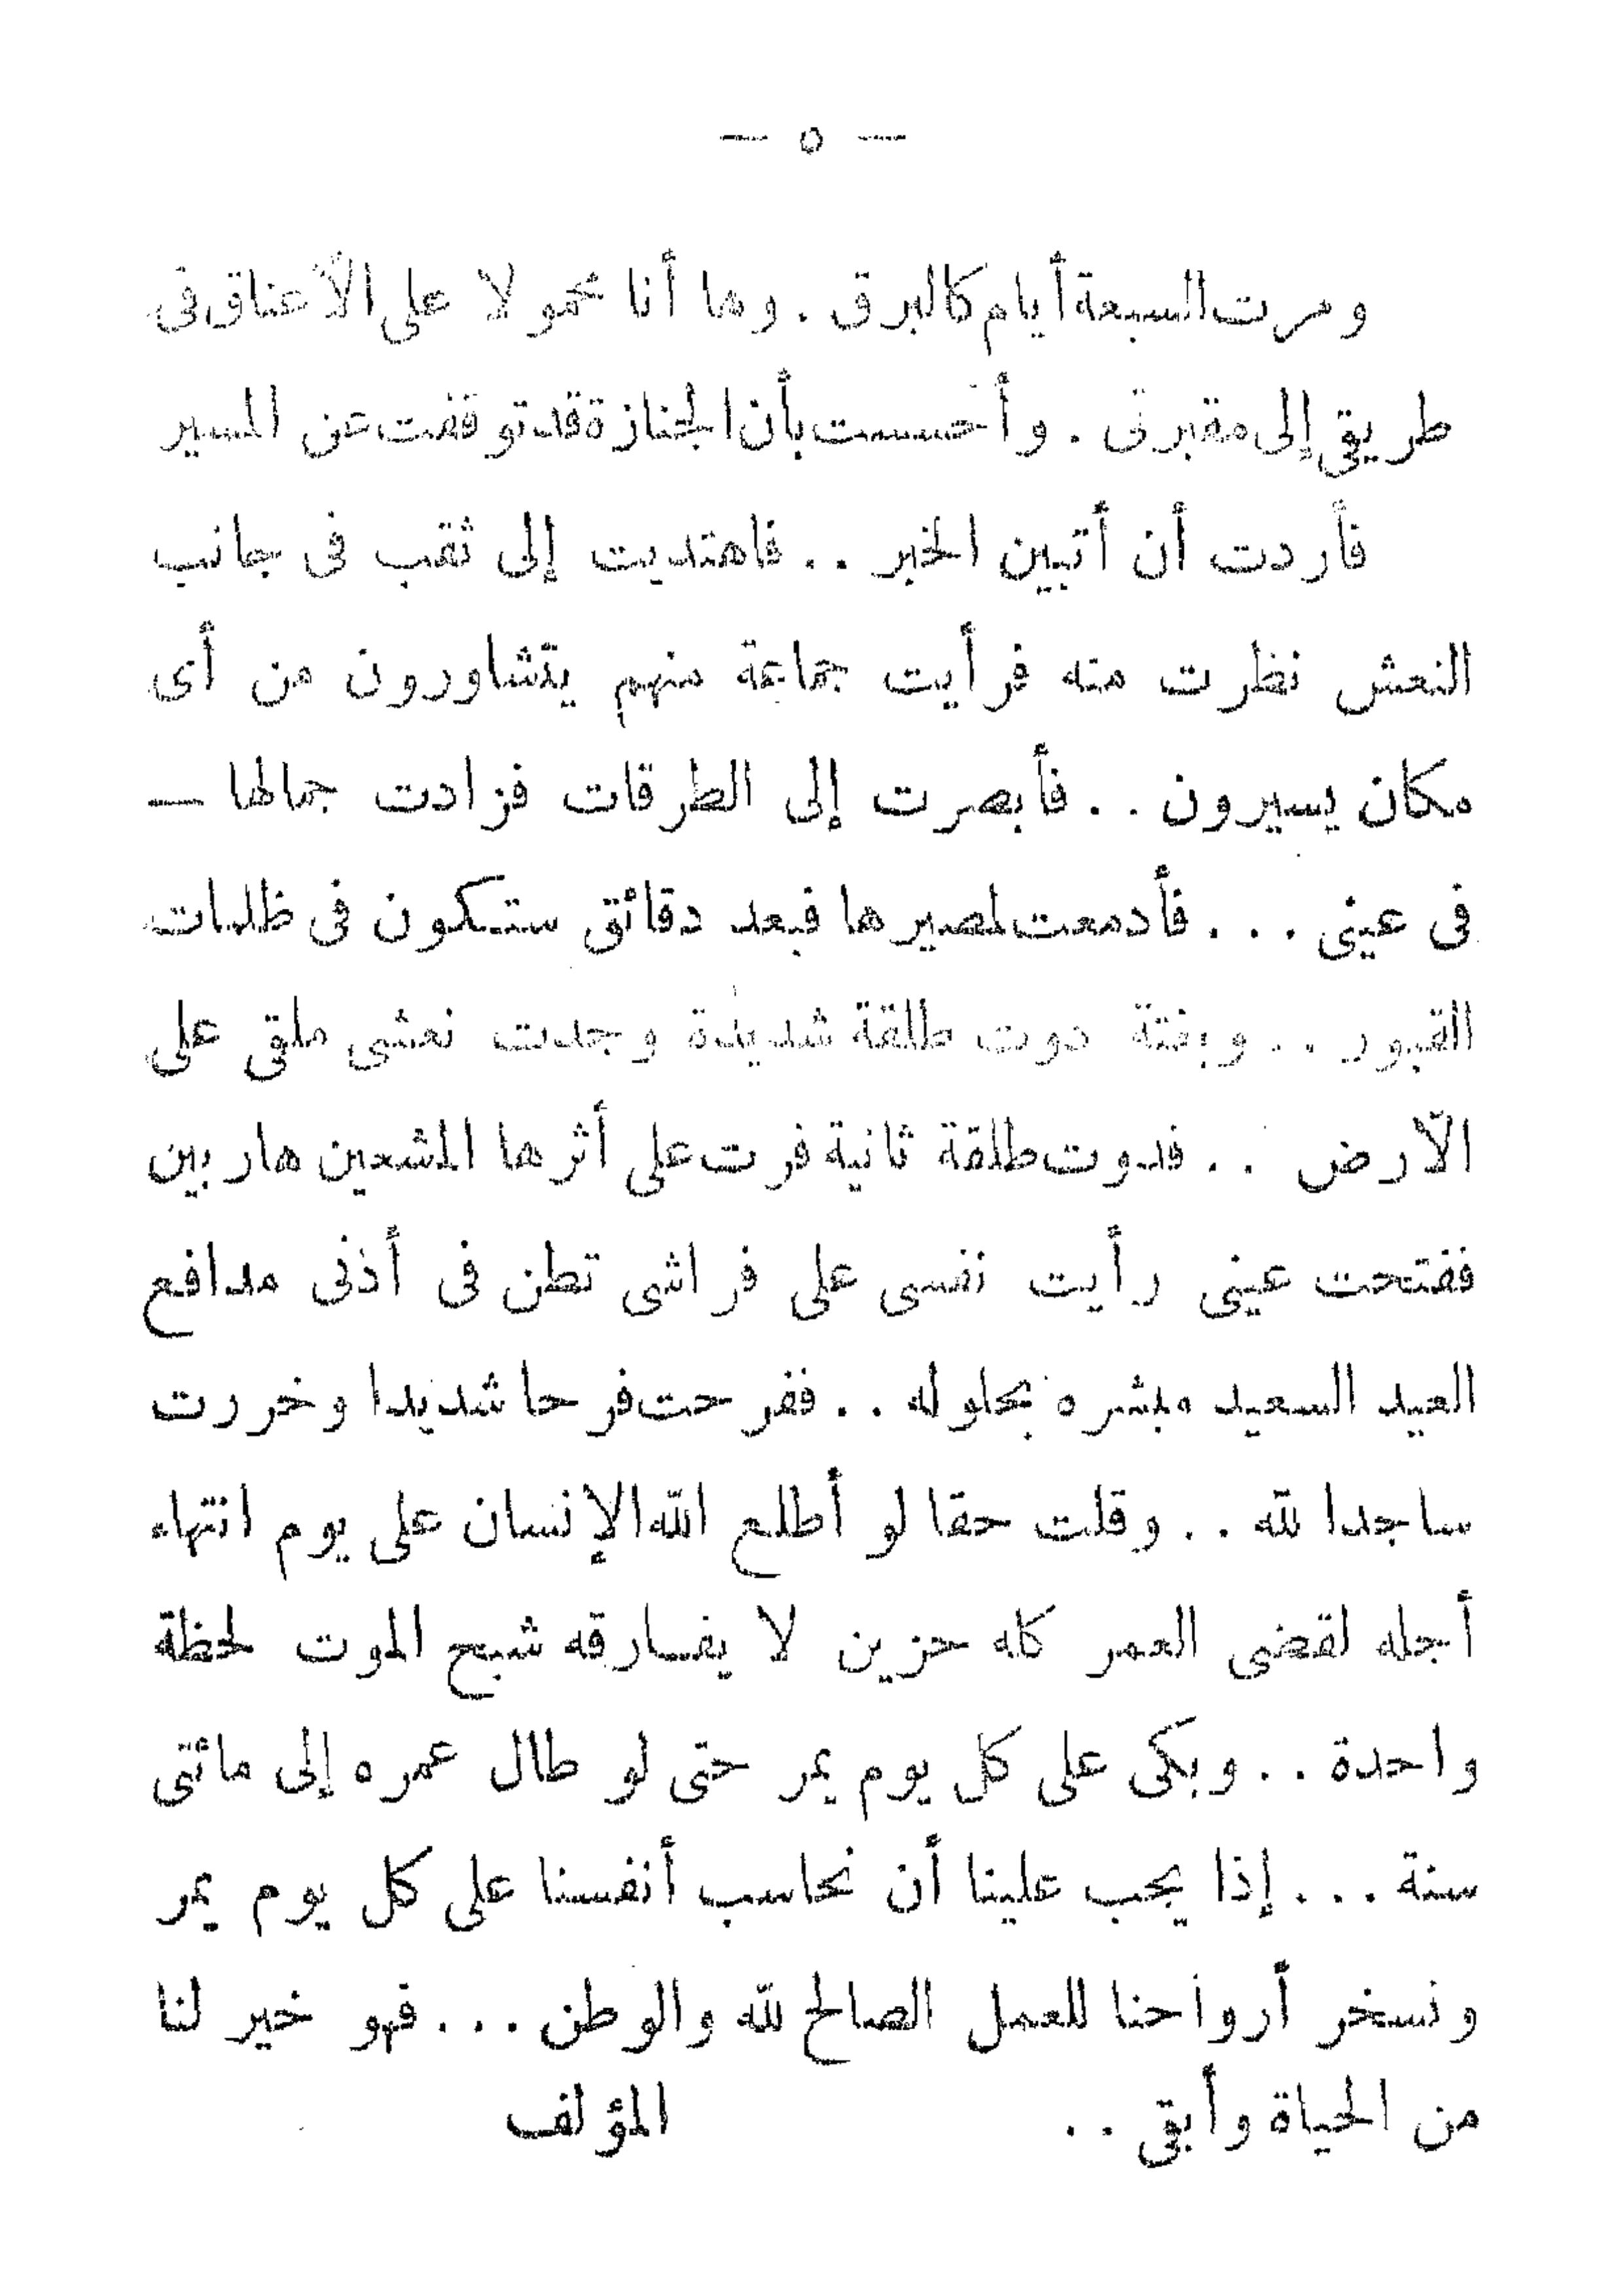 — ٥ —
ومرت السبعة أيام كالبرق . وها أنا محمولا على الأعناق فى
طريقى إلى مقبرتى . وأحسست بأن الجنازة قد توقفت عن المسير
فأردت أن أتبين الخبر . . فاهتديت إلى ثقب فى جانب
النعش نظرت منه فرأيت جماعة منهم يتشاورون من أى
مكان يسيرون . . فأبصرت إلى الطرقات فزادت جمالها —
فى عينى . . . فأدمعت لمصيرها فبعد دقائق ستكون فى ظلمات
القبور . . وبغتة دوت طلقة شديدة وجدت نعشى ملقى على
الأرض . . فدوت طلقة ثانية فرت على أثرها المشعين هاربين
ففتحت عينى رأيت نفسى على فراشى تطن فى أذنى مدافع
العيد السعيد مبشره بحلوله . . ففرحت فرحا شديدا وخررت
ساجدا لله . . وقلت حقا لو أطلع الله الإنسان على يوم انتهاء
أجله لقضى العمر كله حزين لا يفارقه شبح الموت لحظة
واحدة . . وبكى على كل يوم يمر حتى لو طال عمره إلى مائتى
سنة . . . إذا يجب علينا أن نحاسب أنفسنا على كل يوم يمر
ونسخر أرواحنا للعمل الصالح لله والوطن . . . فهو خير لنا
من الحياة وأبقى . . المؤلف